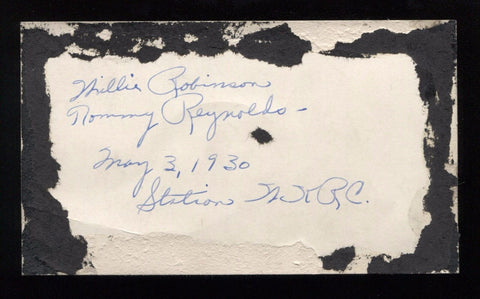 Willie Robinson
Tommy Reynolds -
May 3, 1930
Station W.K.R.C.